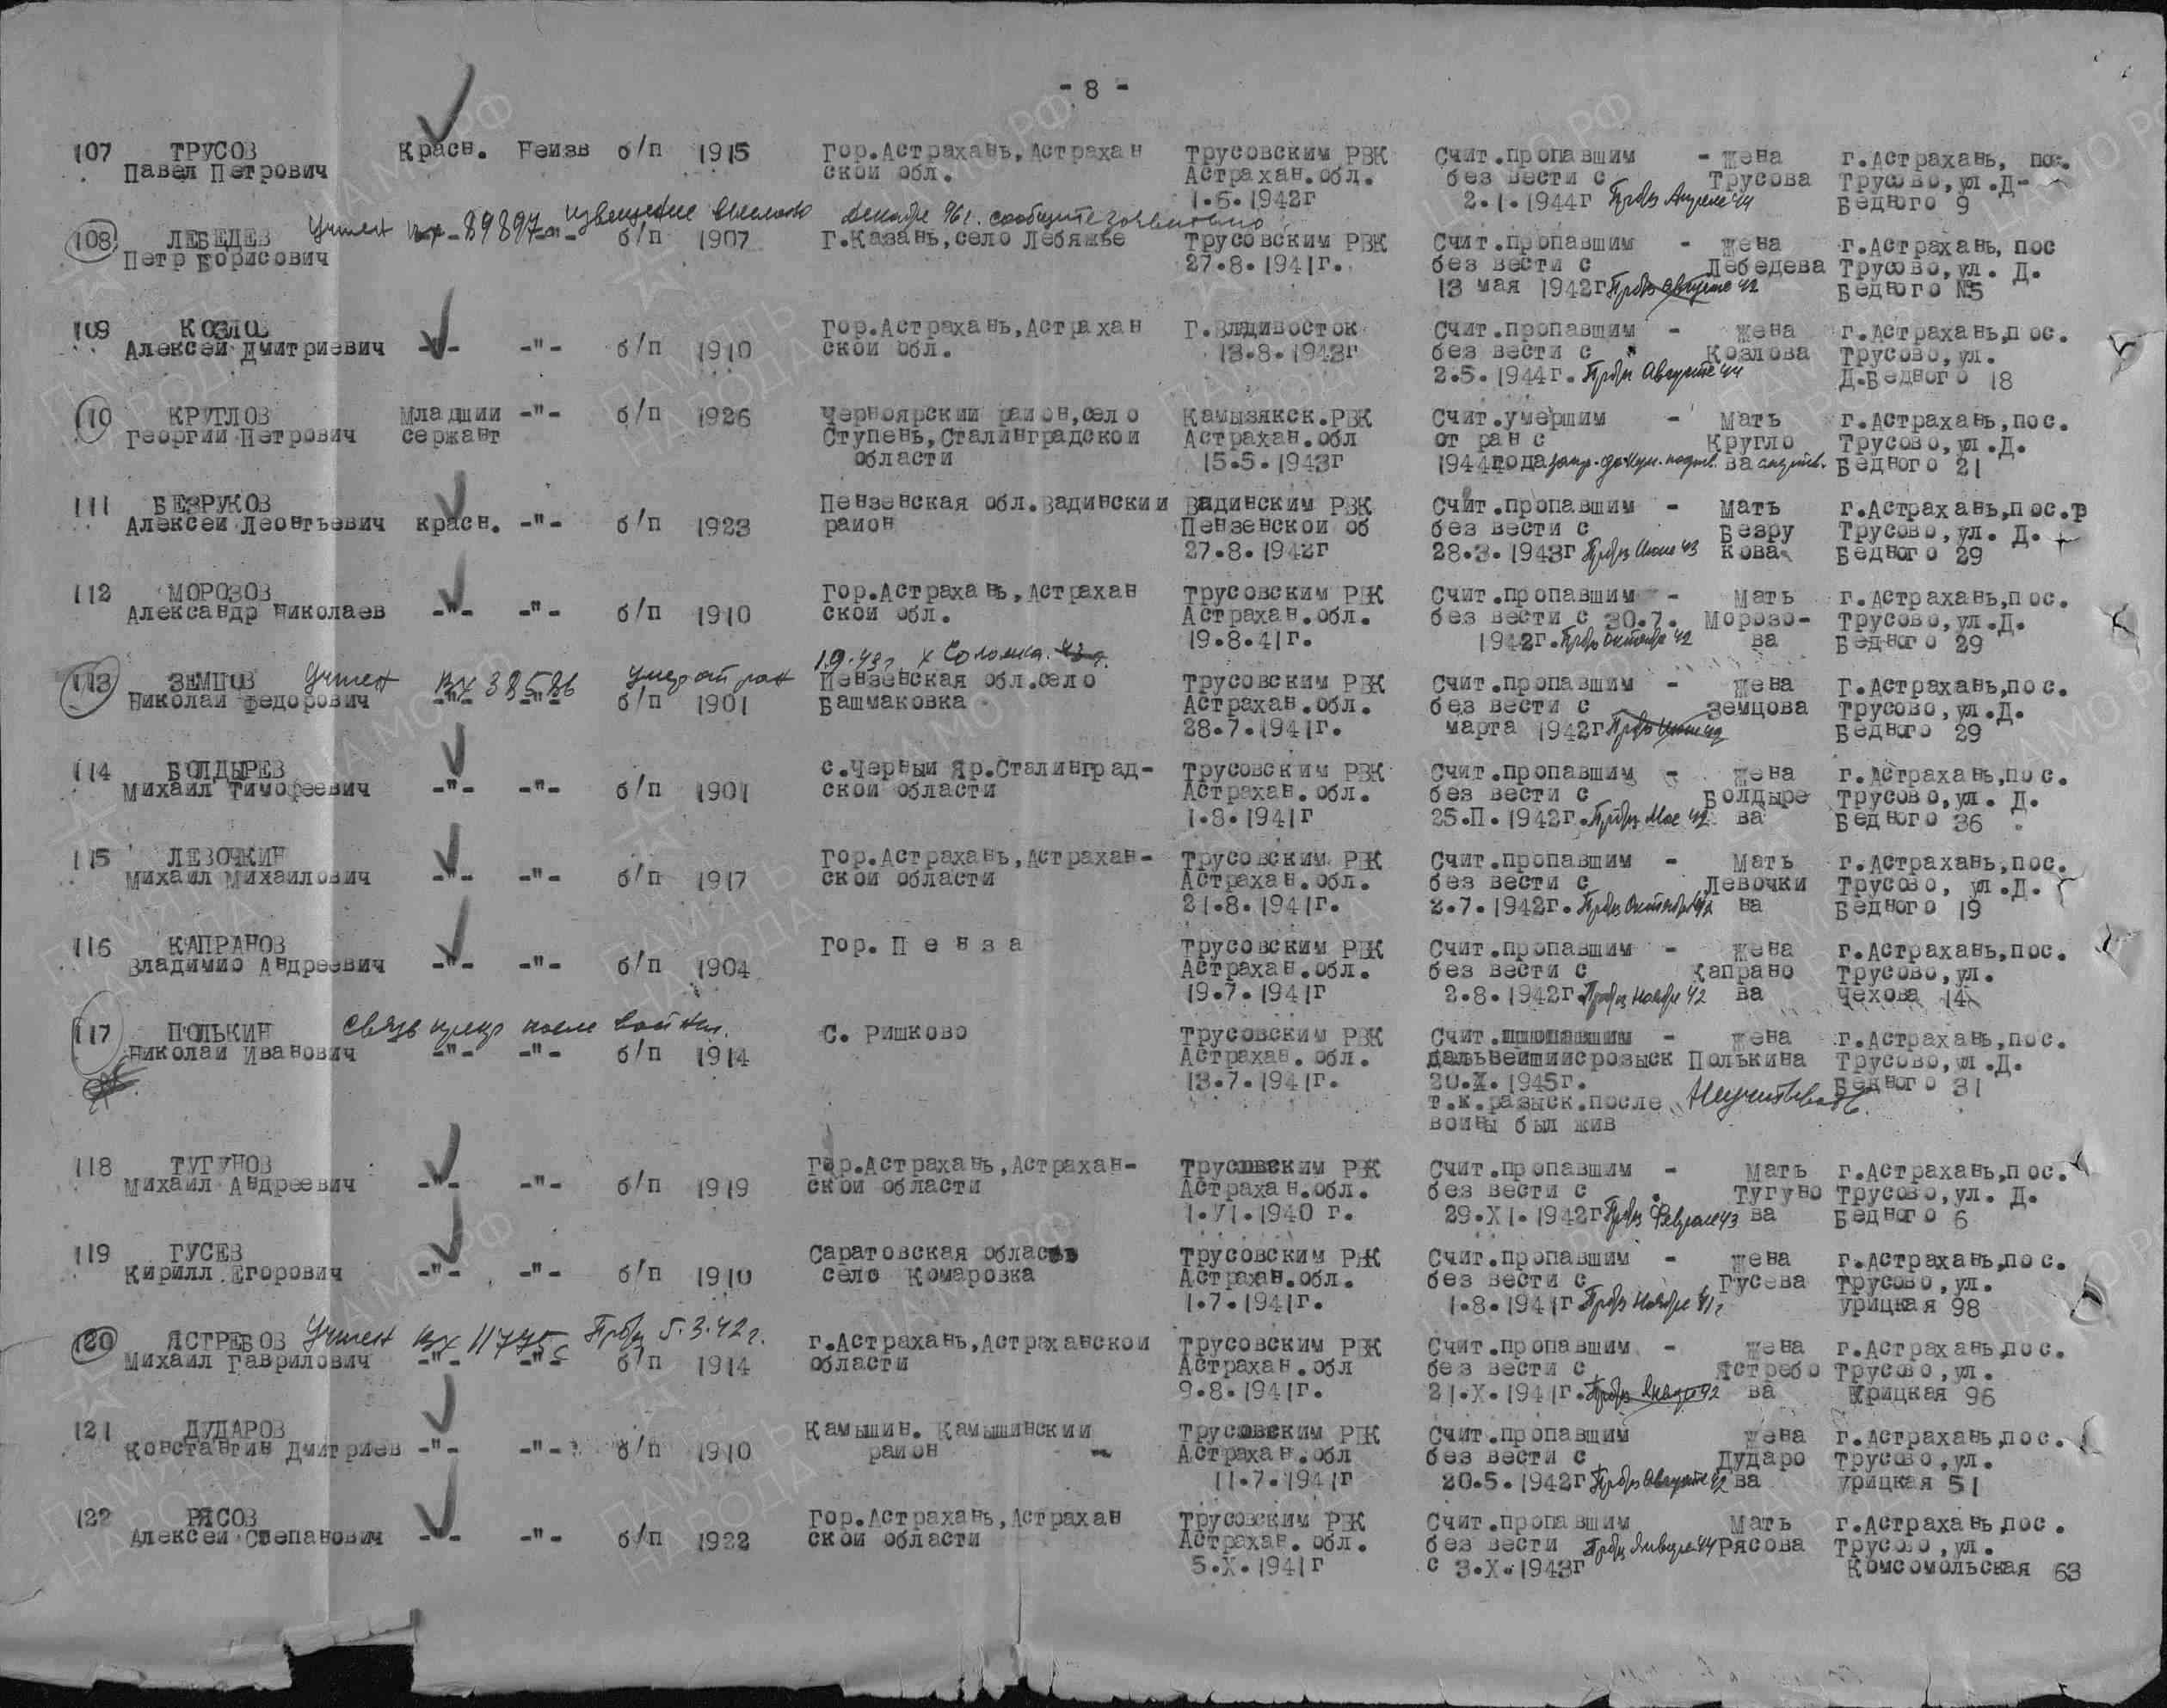 - 8 -
107 ТРУСОВ Красн. Неизв б/п 1915 Гор.Астрахань,Астрахан Трусовским РВК Счит.пропавшим - жена г.Астрахань, пос.
Павел Петрович ской обл. Астрахан.обл. без вести с Трусова Трусово,ул.Д-
1.6.1942г 2.1.1944г Прбз Апреле 44 Бедного 9
Учтен вх 89897 извещение выслано декабре 961. сообщите
108 ЛЕБЕДЕВ -"- -"- б/п 1907 Г.Казань,село Лебяжье Трусовским РВК Счит.пропавшим - жена г.Астрахань, пос
Петр Борисович 27.8.1941г. без вести с Лебедева Трусово,ул. Д.
13 мая 1942г Прбз августе 42 Бедного №5
109 КОЗЛОВ Гор.Астрахань,Астрахан Г.Владивосток Счит.пропавшим - жена г.Астрахань,пос.
Алексей Дмитриевич -"- -"- б/п 1910 ской обл. 13.8.1943г без вести с Козлова Трусово,ул.
2.5.1944г. Прбз Августе 44 Д.Бедного 18
110 КРУГЛОВ Младший -"- б/п 1926 Черноярский район,село Камызякск.РВК Счит.умершим - Мать г.Астрахань,пос.
Георгий Петрович сержант Ступень,Сталинградской Астрахан.обл от ран с Кругло Трусово,ул.Д.
области 15.5.1943г 1944года ва Бедного 21
111 БЕЗРУКОВ Пензенская обл.Вадинский Вадинским РВК Счит.пропавшим - Мать г.Астрахань,пос.Т
Алексей Леонтьевич красн. -"- б/п 1923 район Пензенской об без вести с Безру Трусово,ул. Д.
27.8.1942г 28.3.1943г Прбз Июне 43 кова Бедного 29
112 МОРОЗОВ Гор.Астрахань,Астрахан Трусовским РВК Счит.пропавшим - Мать г.Астрахань,пос.
Александр Николаев -"- -"- б/п 1910 ской обл. Астрахан.обл. без вести с 30.7. Морозо- Трусово,ул.Д.
19.8.41г. 1942г. Прбз октябре 42 ва Бедного 29
Учтен вх 38586 умер от ран 1.9.43г х Соломка
113 ЗЕМЦОВ Пензенская обл.село Трусовским РВК Счит.пропавшим - жена Г.Астрахань,пос.
Николай Федорович -"- -"- б/п 1901 Башмаковка Астрахан.обл. без вести с Земцова Трусово,ул.Д.
28.7.1941г. марта 1942г Прбз Июне 42 Бедного 29
114 БОЛДЫРЕВ с.Черный Яр.Сталинград- Трусовским РВК Счит.пропавшим - жена г.Астрахань,пос.
Михаил Тимофеевич -"- -"- б/п 1901 ской области Астрахан.обл. без вести с Болдыре Трусово,ул. Д.
1.8.1941г 25.П.1942г. Прбз Мае 42 ва Бедного 36
115 ЛЕВОЧКИН Гор.Астрахань,Астрахан- Трусовским РВК Счит.пропавшим - Мать г.Астрахань,пос.
Михаил Михайлович -"- -"- б/п 1917 ской области Астрахан.обл. без вести с Левочки Трусово, ул.Д.
21.8.1941г. 2.7.1942г. Прбз Октябре 42 на Бедного 19
116 КАПРАНОВ Гор. П е н з а Трусовским РВК Счит.пропавшим - жена г.Астрахань,пос.
Владимир Андреевич -"- -"- б/п 1904 Астрахан.обл. без вести с Капрано Трусово,ул.
19.7.1941г 2.8.1942г. Прбз Ноябре 42 ва Чехова 14
117 ПОЛЬКИН связь прекр после войны. С. Ришково Трусовским РВК Счит.пропавшим - жена г.Астрахань,пос.
Николай Иванович -"- -"- б/п 1914 Астрахан. обл. дальнейшийсрозыск Полькина Трусово,ул.Д.
13.7.1941г. 20.X.1945г. Бедного 31
т.к.разыск.после Неучитывать
войны был жив
118 ТУГУНОВ Гор.Астрахань,Астрахан- Трусовским РВК Счит.пропавшим - Мать г.Астрахань,пос.
Михаил Андреевич -"- -"- б/п 1919 ской области Астрахан.обл. без вести с Тугуно Трусово,ул. Д.
1.VI.1940 г. 29.XI.1942г Прбз Феврале 43 ва Бедного 6
119 ГУСЕВ Саратовская область Трусовским РВК Счит.пропавшим - жена г.Астрахань,пос.
Кирилл Егорович -"- -"- б/п 1910 село Комаровка Астрахан.обл. без вести с Гусева Трусово,ул.
1.7.1941г. 1.8.1941г Прбз Ноябре 41г Урицкая 98
120 ЯСТРЕБОВ Учтен вх 11775с Прбз 5.3.42г. г.Астрахань,Астраханской Трусовским РВК Счит.пропавшим - жена г.Астрахань,пос.
Михаил Гаврилович -"- -"- б/п 1914 области Астрахан.обл без вести с Ястребо Трусово,ул.
9.8.1941г. 21.X.1941г. Прбз Январе 42 ва Урицкая 96
121 ДУДАРОВ Камышин. Камышинский Трусовским РВК Счит.пропавшим жена г.Астрахань,пос.
Константин Дмитриев -"- -"- б/п 1910 район Астрахан.обл без вести с Дударо Трусово,ул.
11.7.1941г 20.5.1942г Прбз Августе 42 ва Урицкая 51
122 РЯСОВ Гор.Астрахань,Астрахан Трусовским РВК Счит.пропавшим Мать г.Астрахань,пос.
Алексей Степанович -"- -"- б/п 1922 ской области Астрахан. обл. без вести Прбз Январе 44 Рясова Трусово,ул.
5.X.1941г с 3.X.1943г Комсомольская 63